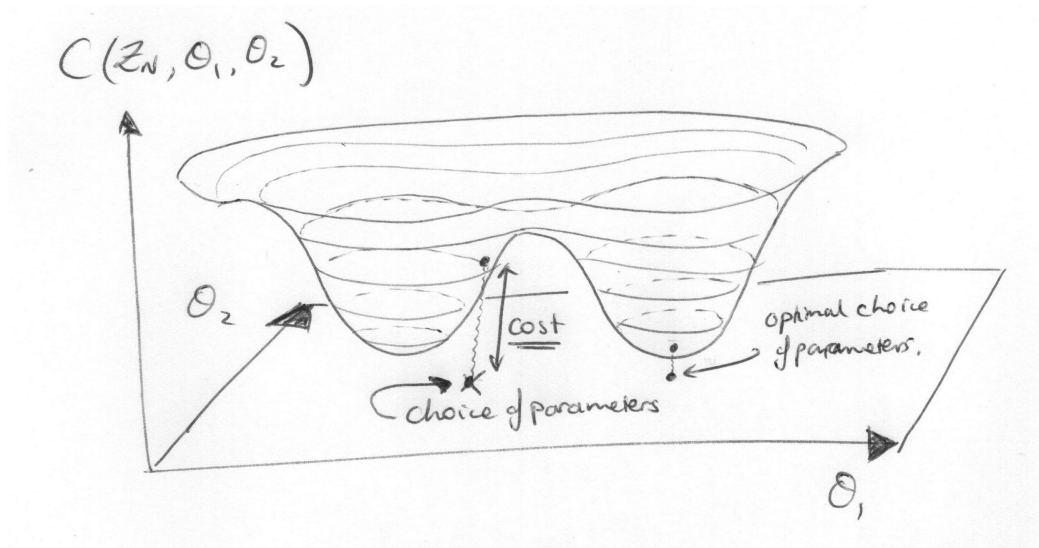 C(Z_N, θ₁, θ₂)
θ₂
cost
optimal choice
of parameters.
choice of parameters
θ₁